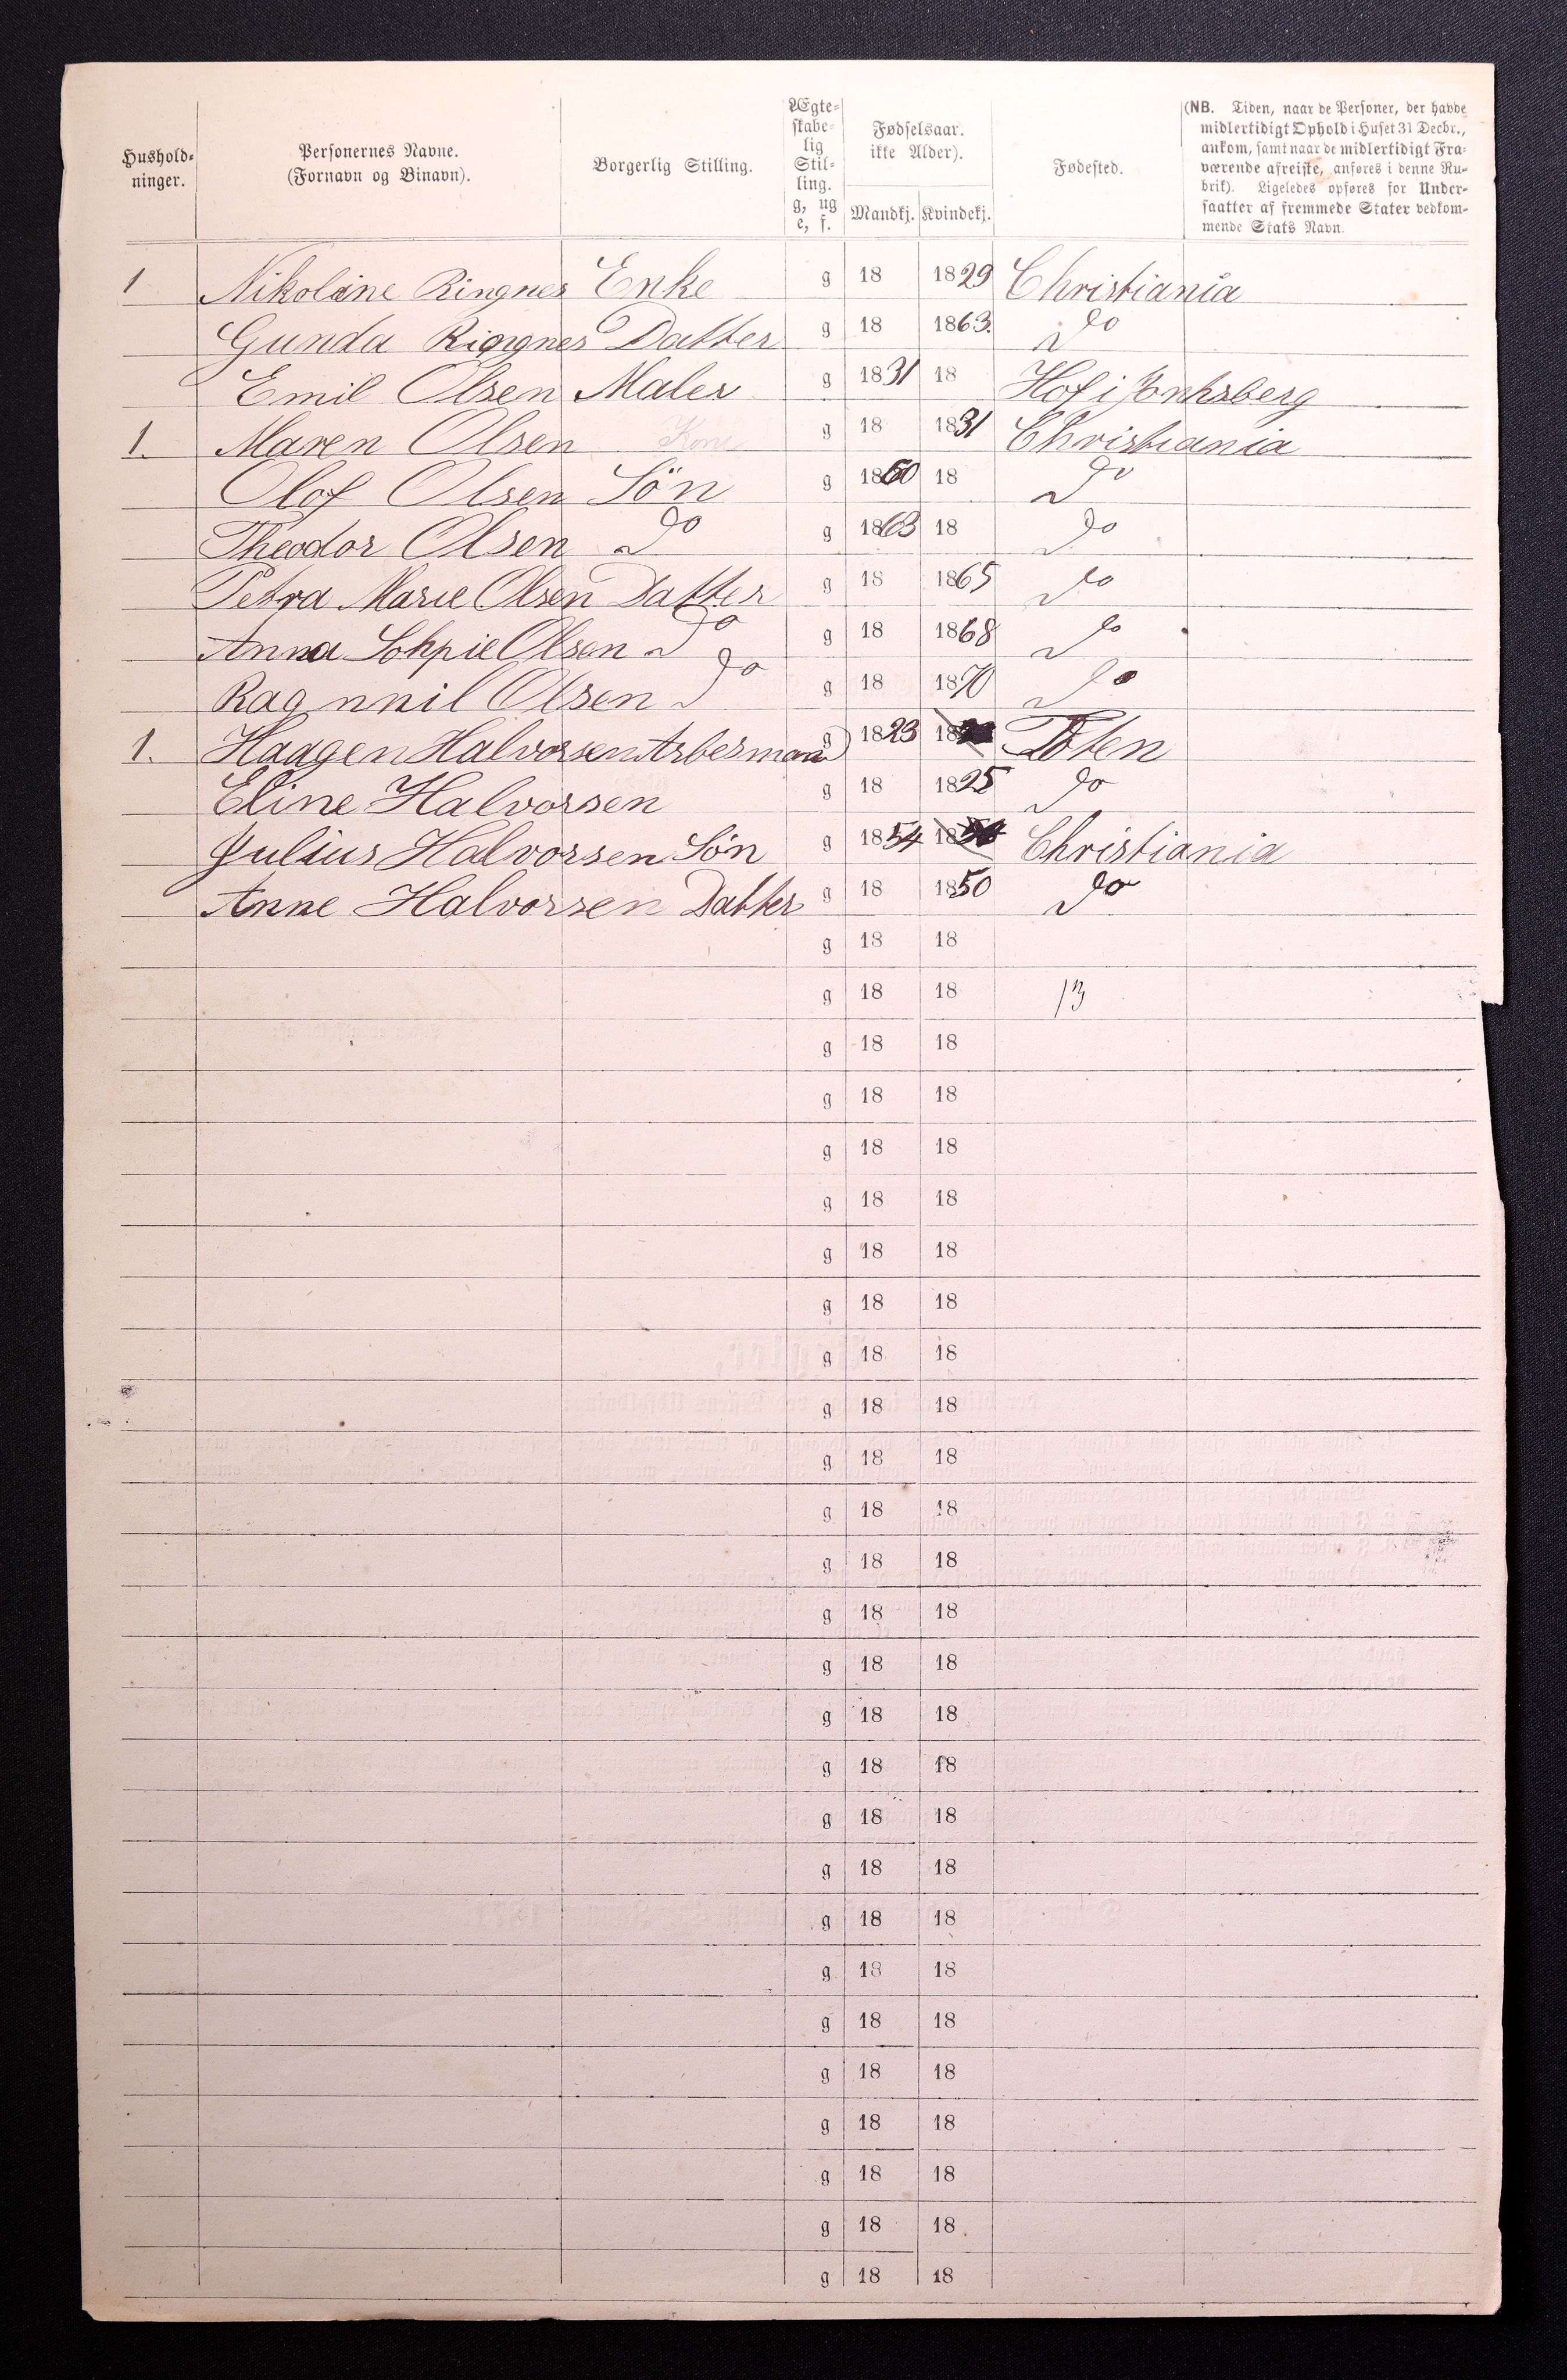 Hushold-ninger. Personernes Navne. (Fornavn og Binavn). Borgerlig Stilling. Ægte-skabe-lig Stil-ling. g, ug e, f. Fødselsaar. ikke Alder). Mandkj. Kvindekj. Fødested.
(NB. Tiden, naar de Personer, der havde
midlertidigt Ophold i Huset 31 Decbr.,
ankom, samt naar de midlertidigt Fra-
værende afreiste, anføres i denne Ru-
brik). Ligeledes opføres for Under-
saatter af fremmede Stater vedkom-
mende Stats Navn.
1 Nikoline Ringnes Enke g 18 1829 Christiania
Gunda Ringnes Datter g 18 1863. do
Emil Olsen Maler g 1831 18 Hof i
1. Maren Olsen Kone g 18 1831 Christiania
Olof Olsen Sön g 1860 18 do
Theodor Olsen do g 1863 18 do
Petra Marie Olsen Datter g 18 1865 do
Anna Sohpie Olsen do g 18 1868 do
Ragnnil Olsen do g 18 1870 do
1. Haagen Halvorsen Arbesmand g 1823 18 Toten
Eline Halvorsen g 18 1825 do
Julius Halvorsen Sön g 1854 18 Christiania
Anne Halvorsen Datter g 18 1850 do
g 18 18
g 18 18 13
g 18 18
g 18 18
g 18 18
g 18 18
g 18 18
g 18 18
g 18 18
g 18 18
g 18 18
g 18 18
g 18 18
g 18 18
g 18 18
g 18 18
g 18 18
g 18 18
g 18 18
g 18 18
g 18 18
g 18 18
g 18 18
g 18 18
g 18 18
g 18 18
g 18 18